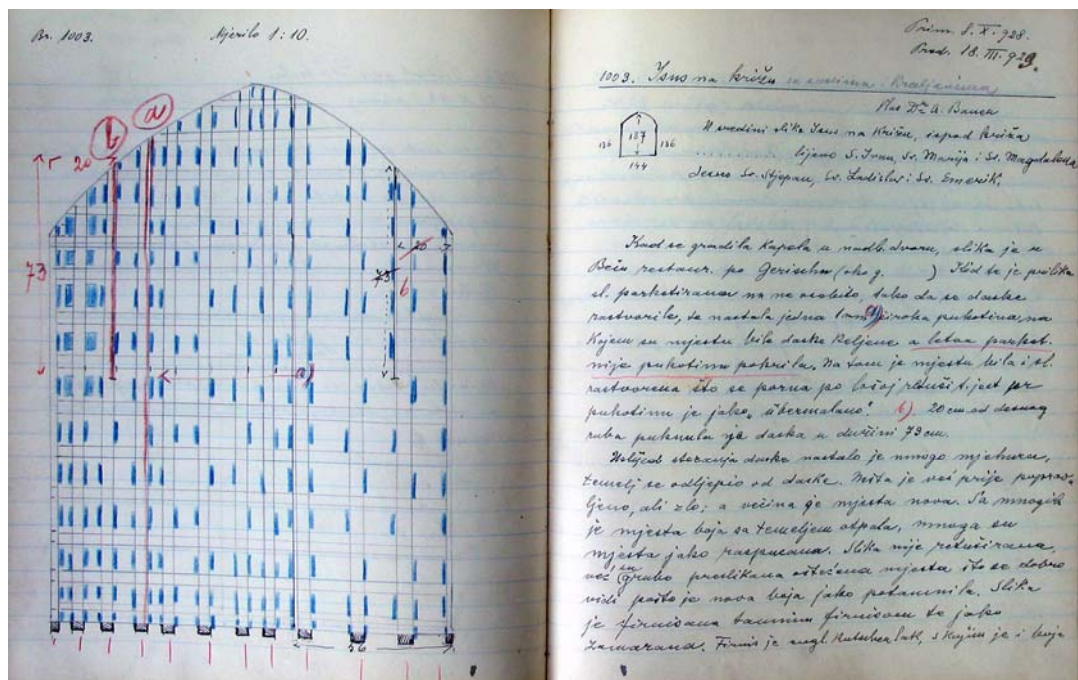 Br. 1003.
Mjerilo 1:10.
b
a
20
73
20
73
b
a)
56
Prim. 8. X. 928.
Pred. 18. III. 929.
1003. Isus na križu sa svecima i kraljevima
Vlas. Dr. A. Bauer
187
136 136
144
U sredini slike Isus na Križu, ispod križa
lijevo S. Ivan, Sv. Marija i Sv. Magdalena
desno Sv. Stjepan, Sv. Ladislav i Sv. Emerik.
Kad se gradila kapela u nadb. dvoru, slika je u
Beču restaur. po Gerischu (oko g. ) Kod te je prilike
sl. parketirana no ne osobito, tako da se daske
rastvorile, te nastala jedna široka pukotina, na
kojem su mjestu bile daske keljene a letva parket.
nije pukotinu pokrila. Na tom je mjestu bila i sl.
rastvorena što se pozna po lošoj retuši t. jest jer
pukotinu je jako „übermalano". b) 20 cm od desnog
ruba puknula je daska u dužini 73 cm.
Uslijed stezanja daske nastalo je mnogo mjehura,
temelj se odljepio od daske. Mjesta je već prije
ljeno, ali zlo; a većina je mjesta nova. Sa mnogih
je mjesta boja sa temeljem otpala, mnoga su
mjesta jako raspucana. Slika nije retuširana,
već su grubo preslikana oštećena mjesta što se dobro
vidi pošto je nova boja jako potamnila. Slika
je firnisana tamnim firnisom te jako
zamazana. Firnis je engl. lak, s kojim je i boja